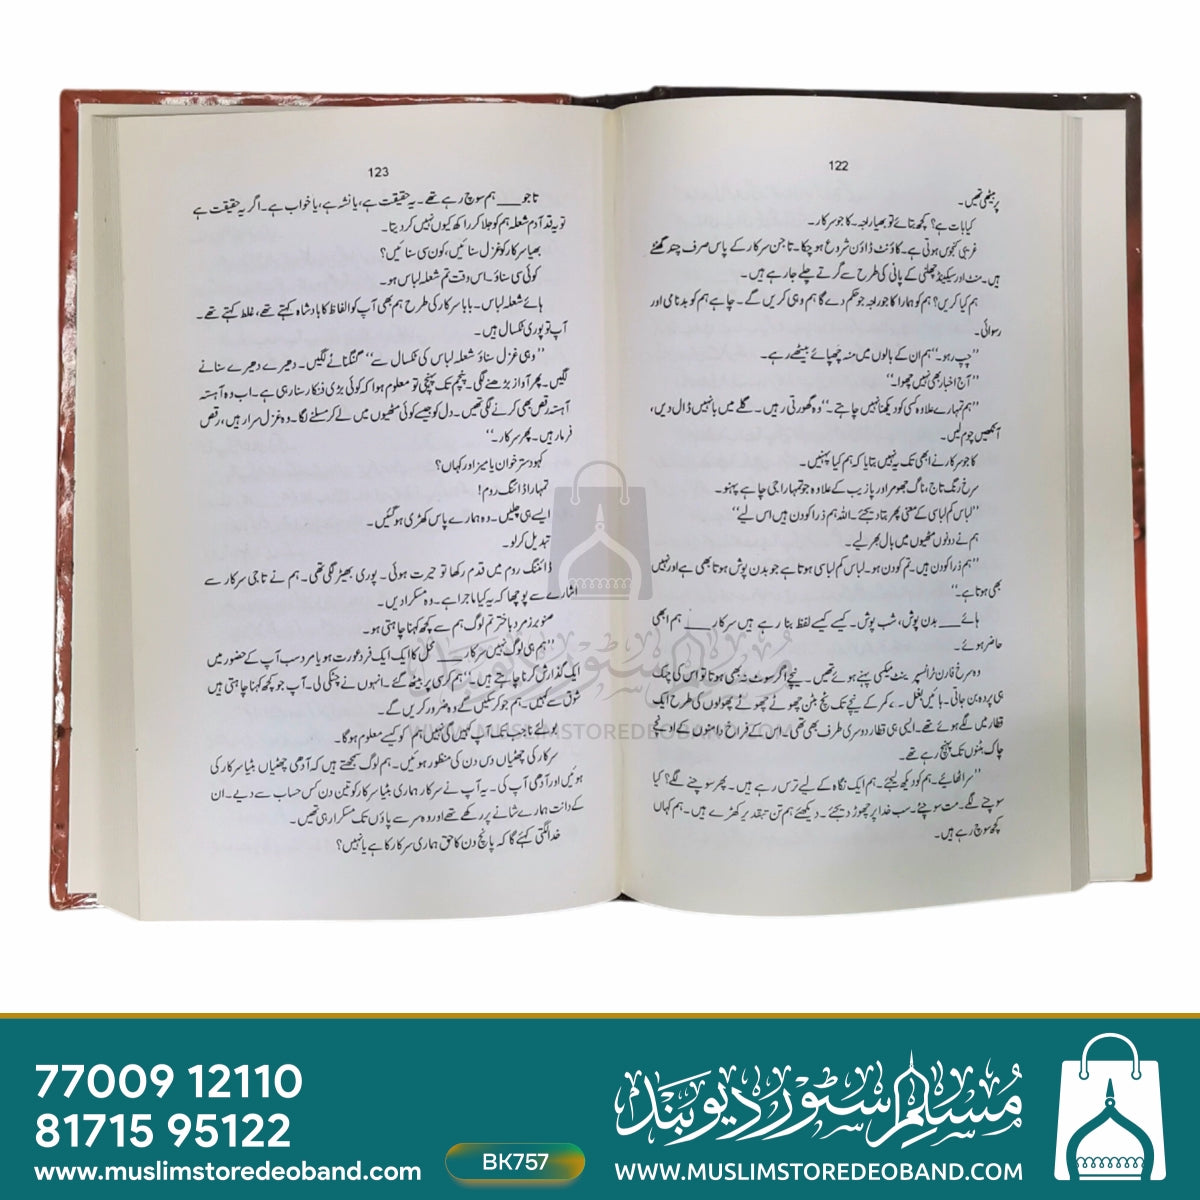 122
پر بیٹھی تھیں۔
کیا بات ہے؟ کچھ بتائیے تو بھیا راجہ۔ کاجو سرکار۔
غریبی کنجوس ہوتی ہے۔ کاؤنٹ ڈاؤن شروع ہو چکا۔ تاجن سرکار کے پاس صرف چند گھنٹے
ہیں۔ منٹ اور سیکینڈ چھلنی کے پانی کی طرح سے گرتے چلے جا رہے ہیں۔
ہم کیا کریں؟ ہم کو ہمارا کاجو راجہ جو حکم دے گا ہم وہی کریں گے۔ چاہے ہم کو بدنامی اور
رسوائی۔
”چپ رہو۔“ ہم ان کے بالوں میں منہ چھپائے بیٹھے رہے۔
”آج اخبار بھی نہیں چھوا۔“
”ہم تمہارے علاوہ کسی کو دیکھنا نہیں چاہتے۔“ وہ گھورتی رہیں۔ گلے میں بانہیں ڈال دیں،
آنکھیں چوم لیں۔
کاجو سرکار نے ابھی تک یہ نہیں بتایا کہ ہم کیا پہنیں۔
سرخ رنگ تاج، ناگ جھومر اور پازیب کے علاوہ جو تمہارا جی چاہے پہنو۔
”لباس کم لباسی کے معنی پھر بتا دیجئے۔ اللہ ہم ذرا کو دن ہیں اس لیے“
ہم نے دونوں مٹھیوں میں بال بھر لیے۔
”ہم ذرا کودن ہیں۔ تم کودن ہو۔ لباس کم لباسی ہوتا ہے جو بدن پوش ہوتا بھی ہے اور نہیں
بھی ہوتا ہے۔“
ہائے ___ بدن پوش، شب پوش۔ کیسے کیسے لفظ بنا رہے ہیں سرکار ___ ہم ابھی
حاضر ہوئے۔
وہ سرخ فارن ٹرانسپیرینٹ میکسی پہنے ہوئے تھیں۔ نیچے اگر سوٹ نہ بھی ہوتا تو اس کی چمک
ہی پردہ بن جاتی۔ بائیں بغل۔ کمر کے نیچے تک نچ بٹن چھوٹے چھوٹے پھولوں کی طرح ایک
قطار میں لگے ہوئے تھے۔ ایسی ہی قطار دوسری طرف بھی تھی۔ اس کے فراخ دامنوں کے اونچے
چاک بٹنوں تک پہنچ رہے تھے۔
”سر اٹھائیے۔ ہم کو دیکھ لیجئے۔ ہم ایک نگاہ کے لیے ترس رہے ہیں۔ پھر سوچنے لگے؟ کیا
سوچنے لگے۔ مت سوچئے۔ سب خدا پر چھوڑ دیجئے۔ دیکھئے ہم تن بتقدیر کھڑے ہیں۔ ہم کہاں
کچھ سوچ رہے ہیں۔
123
تاجو ___ ہم سوچ رہے تھے۔ یہ حقیقت ہے، یا نشہ ہے، یا خواب ہے۔ اگر یہ حقیقت ہے
تو یہ قد آدم شعلہ ہم کو جلا کر راکھ کیوں نہیں کر دیتا۔
بھیا سرکار کو غزل سنائیں، کون سی سنائیں؟
کوئی سی سناؤ۔ اس وقت تم شعلہ لباس ہو۔
ہائے شعلہ لباس۔ بابا سرکار کی طرح ہم بھی آپ کو الفاظ کا بادشاہ کہتے تھے، غلط کہتے تھے۔
آپ تو پوری ٹکسال ہیں۔
”وہی غزل سناؤ شعلہ لباس کی ٹکسال سے“ گنگنانے لگیں۔ دھیرے دھیرے سنانے
لگیں۔ پھر آواز بڑھنے لگی۔ پنچم تک پہنچی تو معلوم ہوا کہ کوئی بڑی فنکار سنا رہی ہے۔ اب وہ آہستہ
آہستہ رقص بھی کرنے لگی تھیں۔ دل کو جیسے کوئی مٹھیوں میں لے کر مسلنے لگا۔ وہ غزل سرا رہیں، رقص
فرما رہیں۔ پھر سرکار۔“
کہو دستر خوان یا میز اور کہاں؟
تمہارا ڈائنگ روم!
ایسے ہی چلیں۔ وہ ہمارے پاس کھڑی ہو گئیں۔
تبدیل کر لو۔
ڈائنگ روم میں قدم رکھا تو حیرت ہوئی۔ پوری بھیڑ لگی تھی۔ ہم نے تاجی سرکار سے
اشارے سے پوچھا کہ یہ کیا ماجرا ہے۔ وہ مسکرا دیں۔
صنوبر زمرد باختر تم لوگ ہم سے کچھ کہنا چاہتی ہو۔
”ہم ہی لوگ نہیں سرکار ___ محل کا ایک ایک فرد عورت ہو یا مرد سب آپ کے حضور میں
ایک گذارش کرنا چاہتے ہیں۔“ ہم کرسی پر بیٹھ گئے۔ انہوں نے چٹکی لی۔ آپ جو کچھ کہنا چاہتی ہیں
شوق سے کہیں۔ ہم جو کر سکیں گے وہ ضرور کریں گے۔
ہائے تاجی جب تک آپ کہیں گی نہیں ہم کو کیسے معلوم ہوگا۔
سرکار کی چھٹیاں دس دن کی منظور ہوئیں۔ ہم لوگ سمجھتے ہیں کہ آدھی چھٹیاں بٹیا سرکار کی
ہوئیں اور آدھی آپ کی۔ یہ آپ نے سرکار ہماری بٹیا سرکار کو تین دن کس حساب سے دیے۔ ان
کے دانت ہمارے شانے پر رکھے تھے اور وہ سر سے پاؤں تک مسکرا رہی تھیں۔
خدا لگتی کہئے گا کہ پانچ دن کا حق ہماری سرکار کا ہے یا نہیں؟
مسلم سٹور دیوبند
WWW.MUSLIMSTOREDEOBAND.COM
77009 12110
81715 95122
www.muslimstoredeoband.com
BK757
مسلم سٹور دیوبند
WWW.MUSLIMSTOREDEOBAND.COM